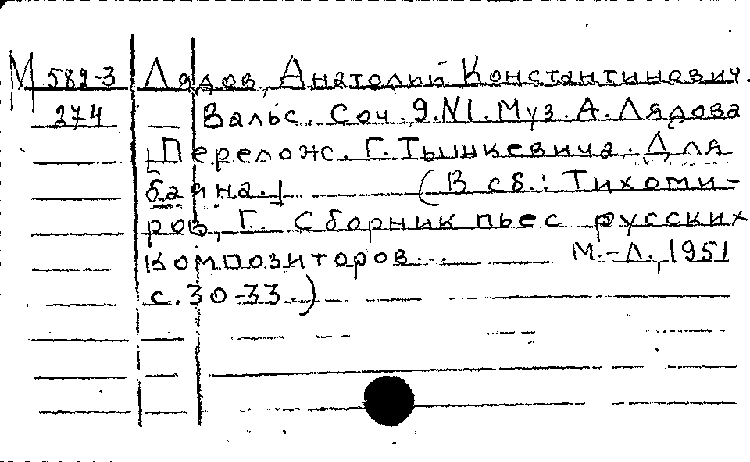 М 582-3 Лядов, Анатолий Константинович.
274 Вальс. Соч. 9. №1. Муз. А. Лядова
[Перелож. Г. Тышкевича. Для
баяна.] (В сб.: Тихоми-
ров, Г. Сборник пьес русских
композиторов... М.-Л., 1951
с. 30-33.)